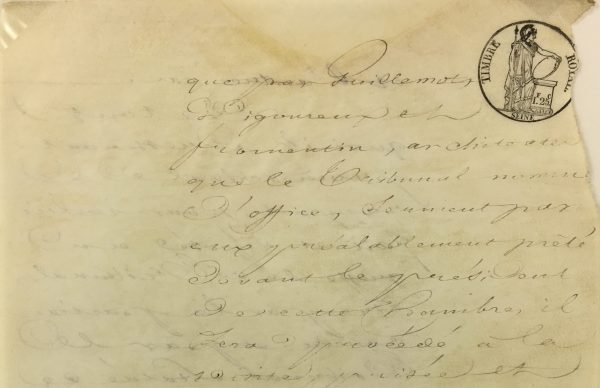 TIMBRE ROYAL
1F.25C
SEINE
que par Guillemot,
Vigoureux et
fromentin, architectes
que le Tribunal nomme
d'office, Serment par
eux préalablement prêté
Devant le président
De cette Chambre, il
Sera procédé à la
et